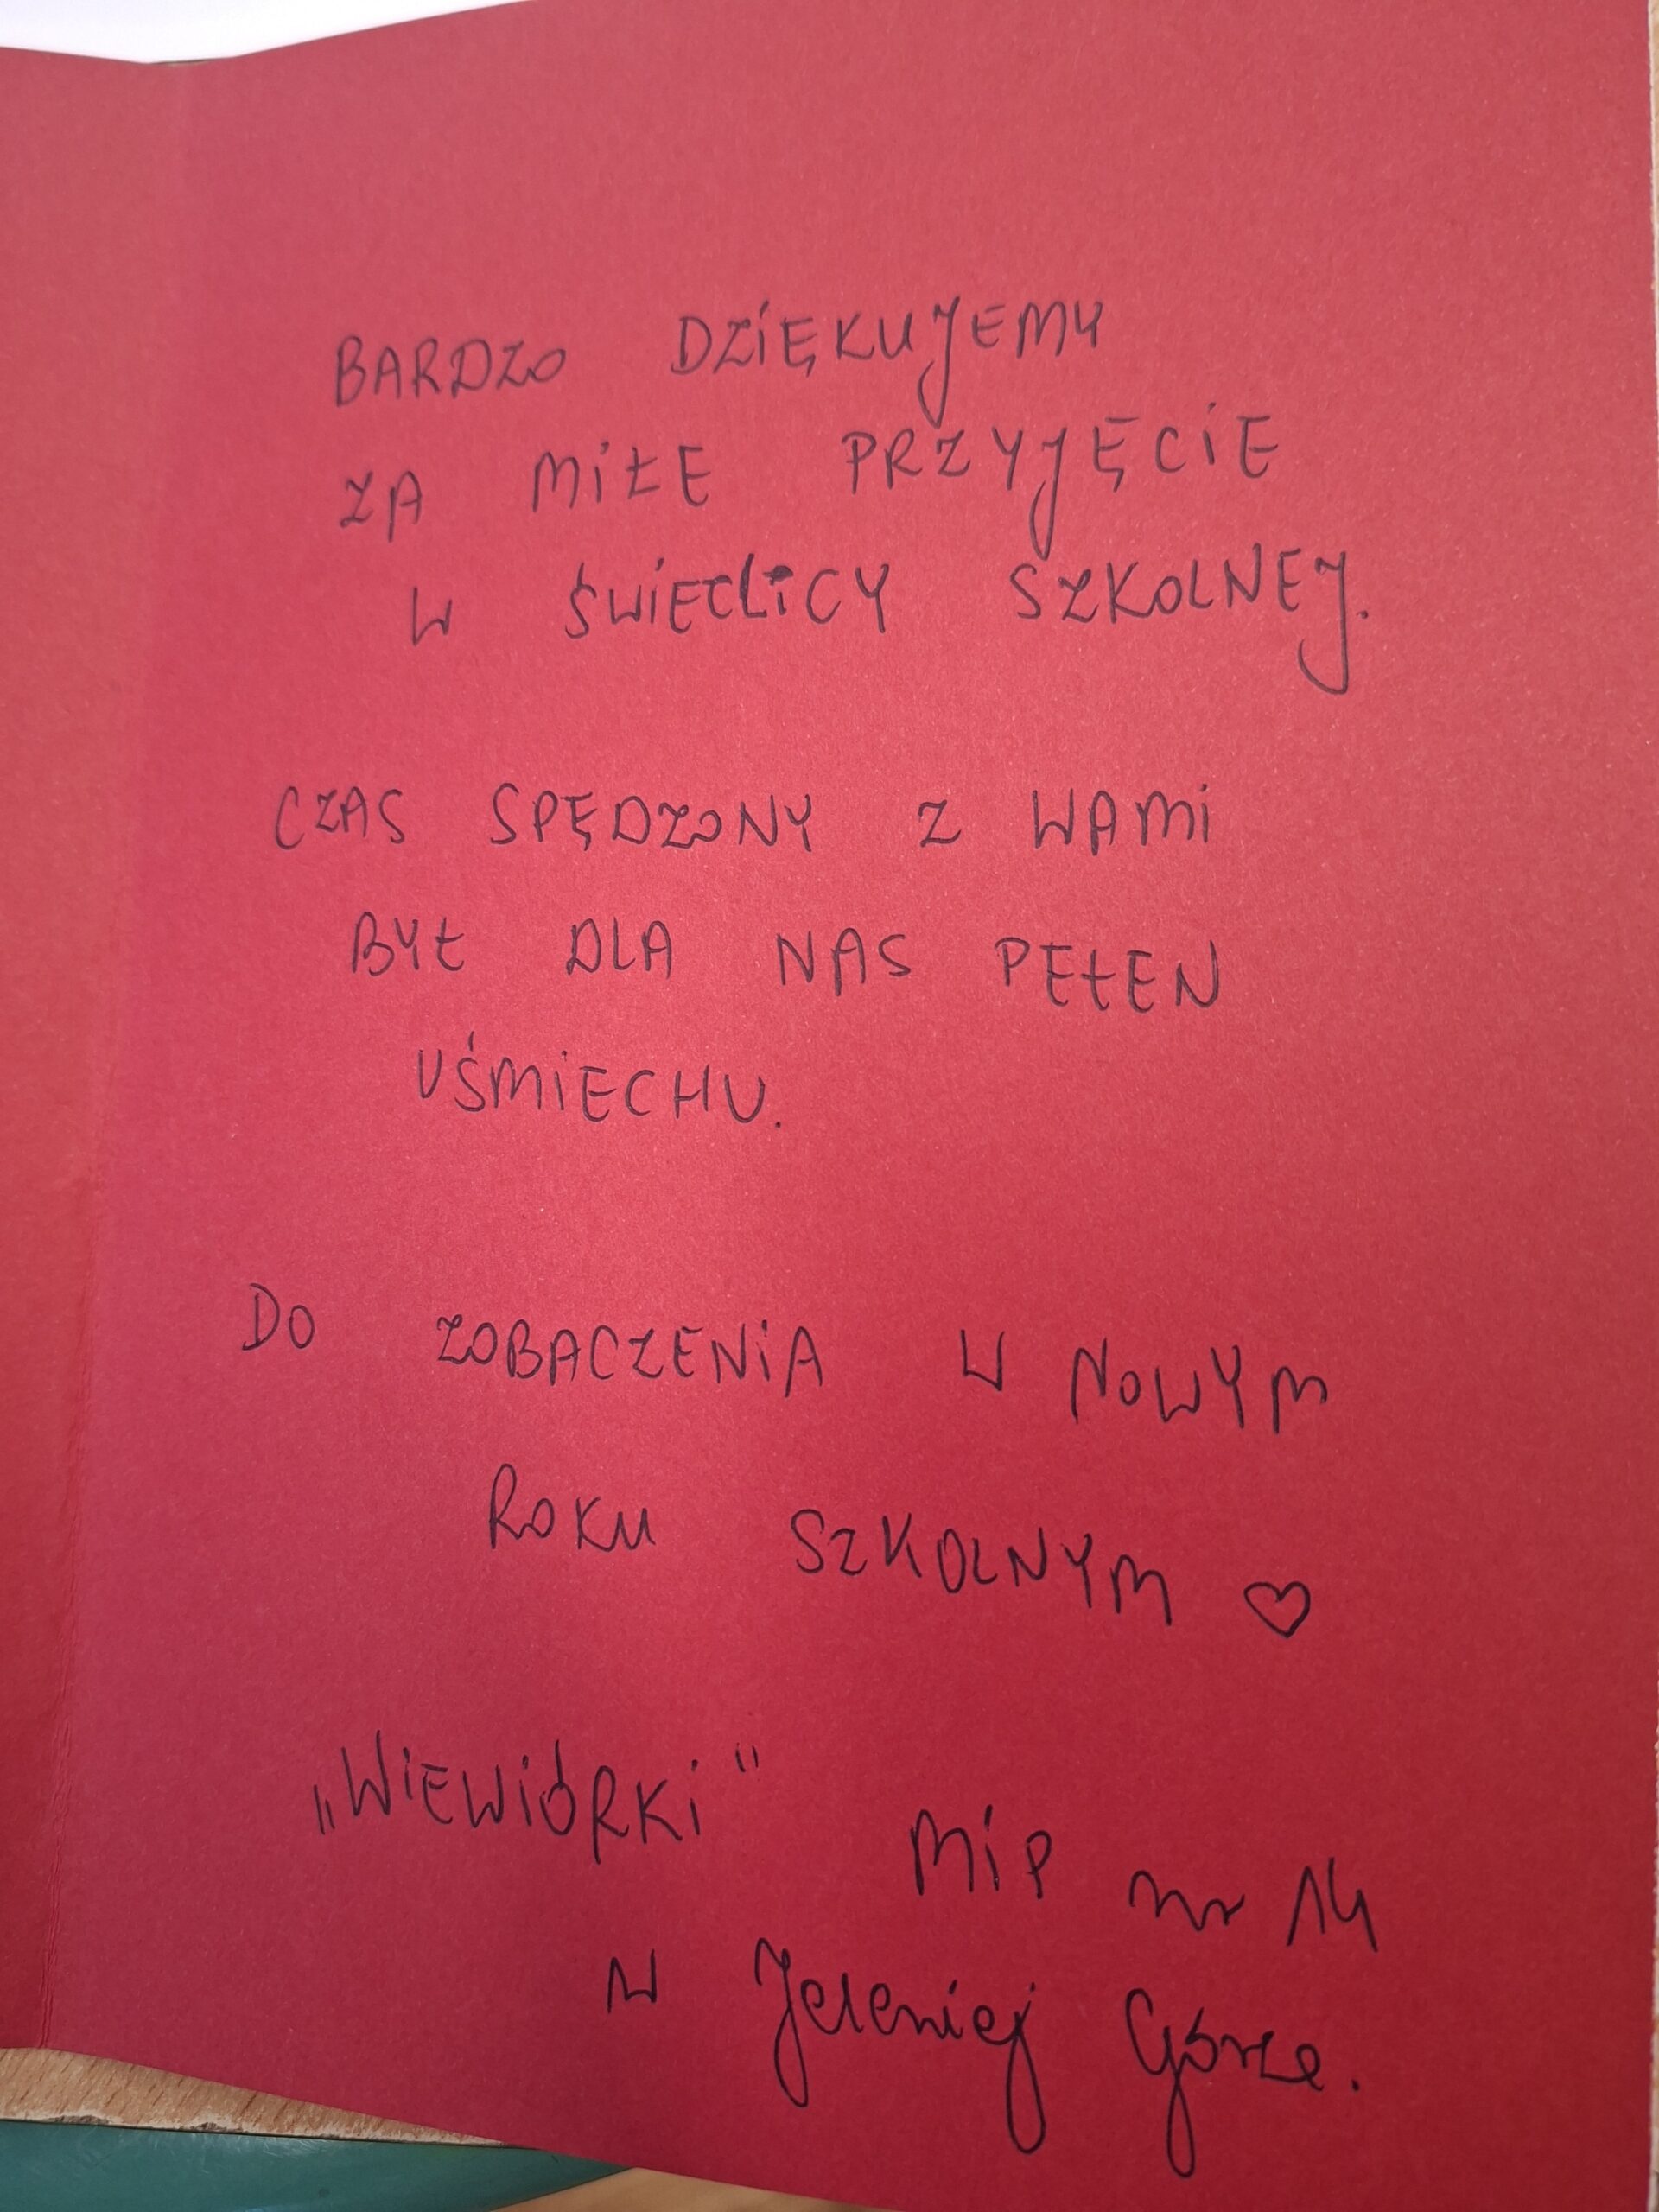 BARDZO DZIĘKUJEMY
ZA MIŁE PRZYJĘCIE
W ŚWIETLICY SZKOLNEJ.
CZAS SPĘDZONY Z WAMI
BYŁ DLA NAS PEŁEN
UŚMIECHU.
DO ZOBACZENIA W NOWYM
ROKU SZKOLNYM ♡
„WIEWIÓRKI" MiP nr 14
w Jeleniej Górze.